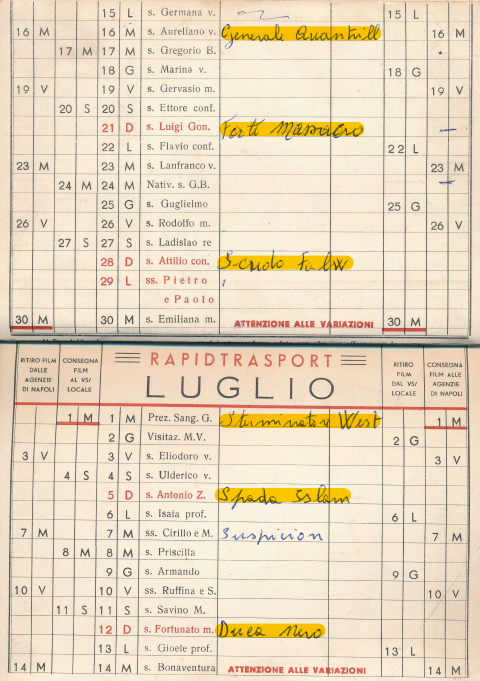 15 L s. Germana v. 15 L
16 M 16 M s. Aureliano v. Generale Quantrill 16 M
17 M 17 M s. Gregorio B.
18 G s. Marina v. 18 G
19 V 19 V s. Gervasio m. 19 V
20 S 20 S s. Ettore conf.
21 D s. Luigi Gon. Forte Massacro
22 L s. Flavio conf. 22 L
23 M 23 M s. Lanfranco v. 23 M
24 M 24 M Nativ. s. G.B.
25 G s. Guglielmo 25 G
26 V 26 V s. Rodolfo m. 26 V
27 S 27 S s. Ladislao re
28 D s. Attilio con. Scudo Falw
29 L ss. Pietro
e Paolo
30 M 30 M s. Emiliana m. ATTENZIONE ALLE VARIAZIONI 30 M
RITIRO FILM DALLE AGENZIE DI NAPOLI
CONSEGNA FILM AL VS/ LOCALE
RAPIDTRASPORT
LUGLIO
RITIRO FILM DAL VS/ LOCALE
CONSEGNA FILM ALLE AGENZIE DI NAPOLI
1 M 1 M Prez. Sang. G. Sterminatore West 1 M
2 G Visitaz. M.V. 2 G
3 V 3 V s. Eliodoro v. 3 V
4 S 4 S s. Ulderico v.
5 D s. Antonio Z. Spada Islam
6 L s. Isaia prof. 6 L
7 M 7 M ss. Cirillo e M. Suspicion 7 M
8 M 8 M s. Priscilla
9 G s. Armando 9 G
10 V 10 V ss. Ruffina e S. 10 V
11 S 11 S s. Savino M.
12 D s. Fortunato m. Duca Nero
13 L s. Gioele prof. 13 L
14 M 14 M s. Bonaventura ATTENZIONE ALLE VARIAZIONI 14 M